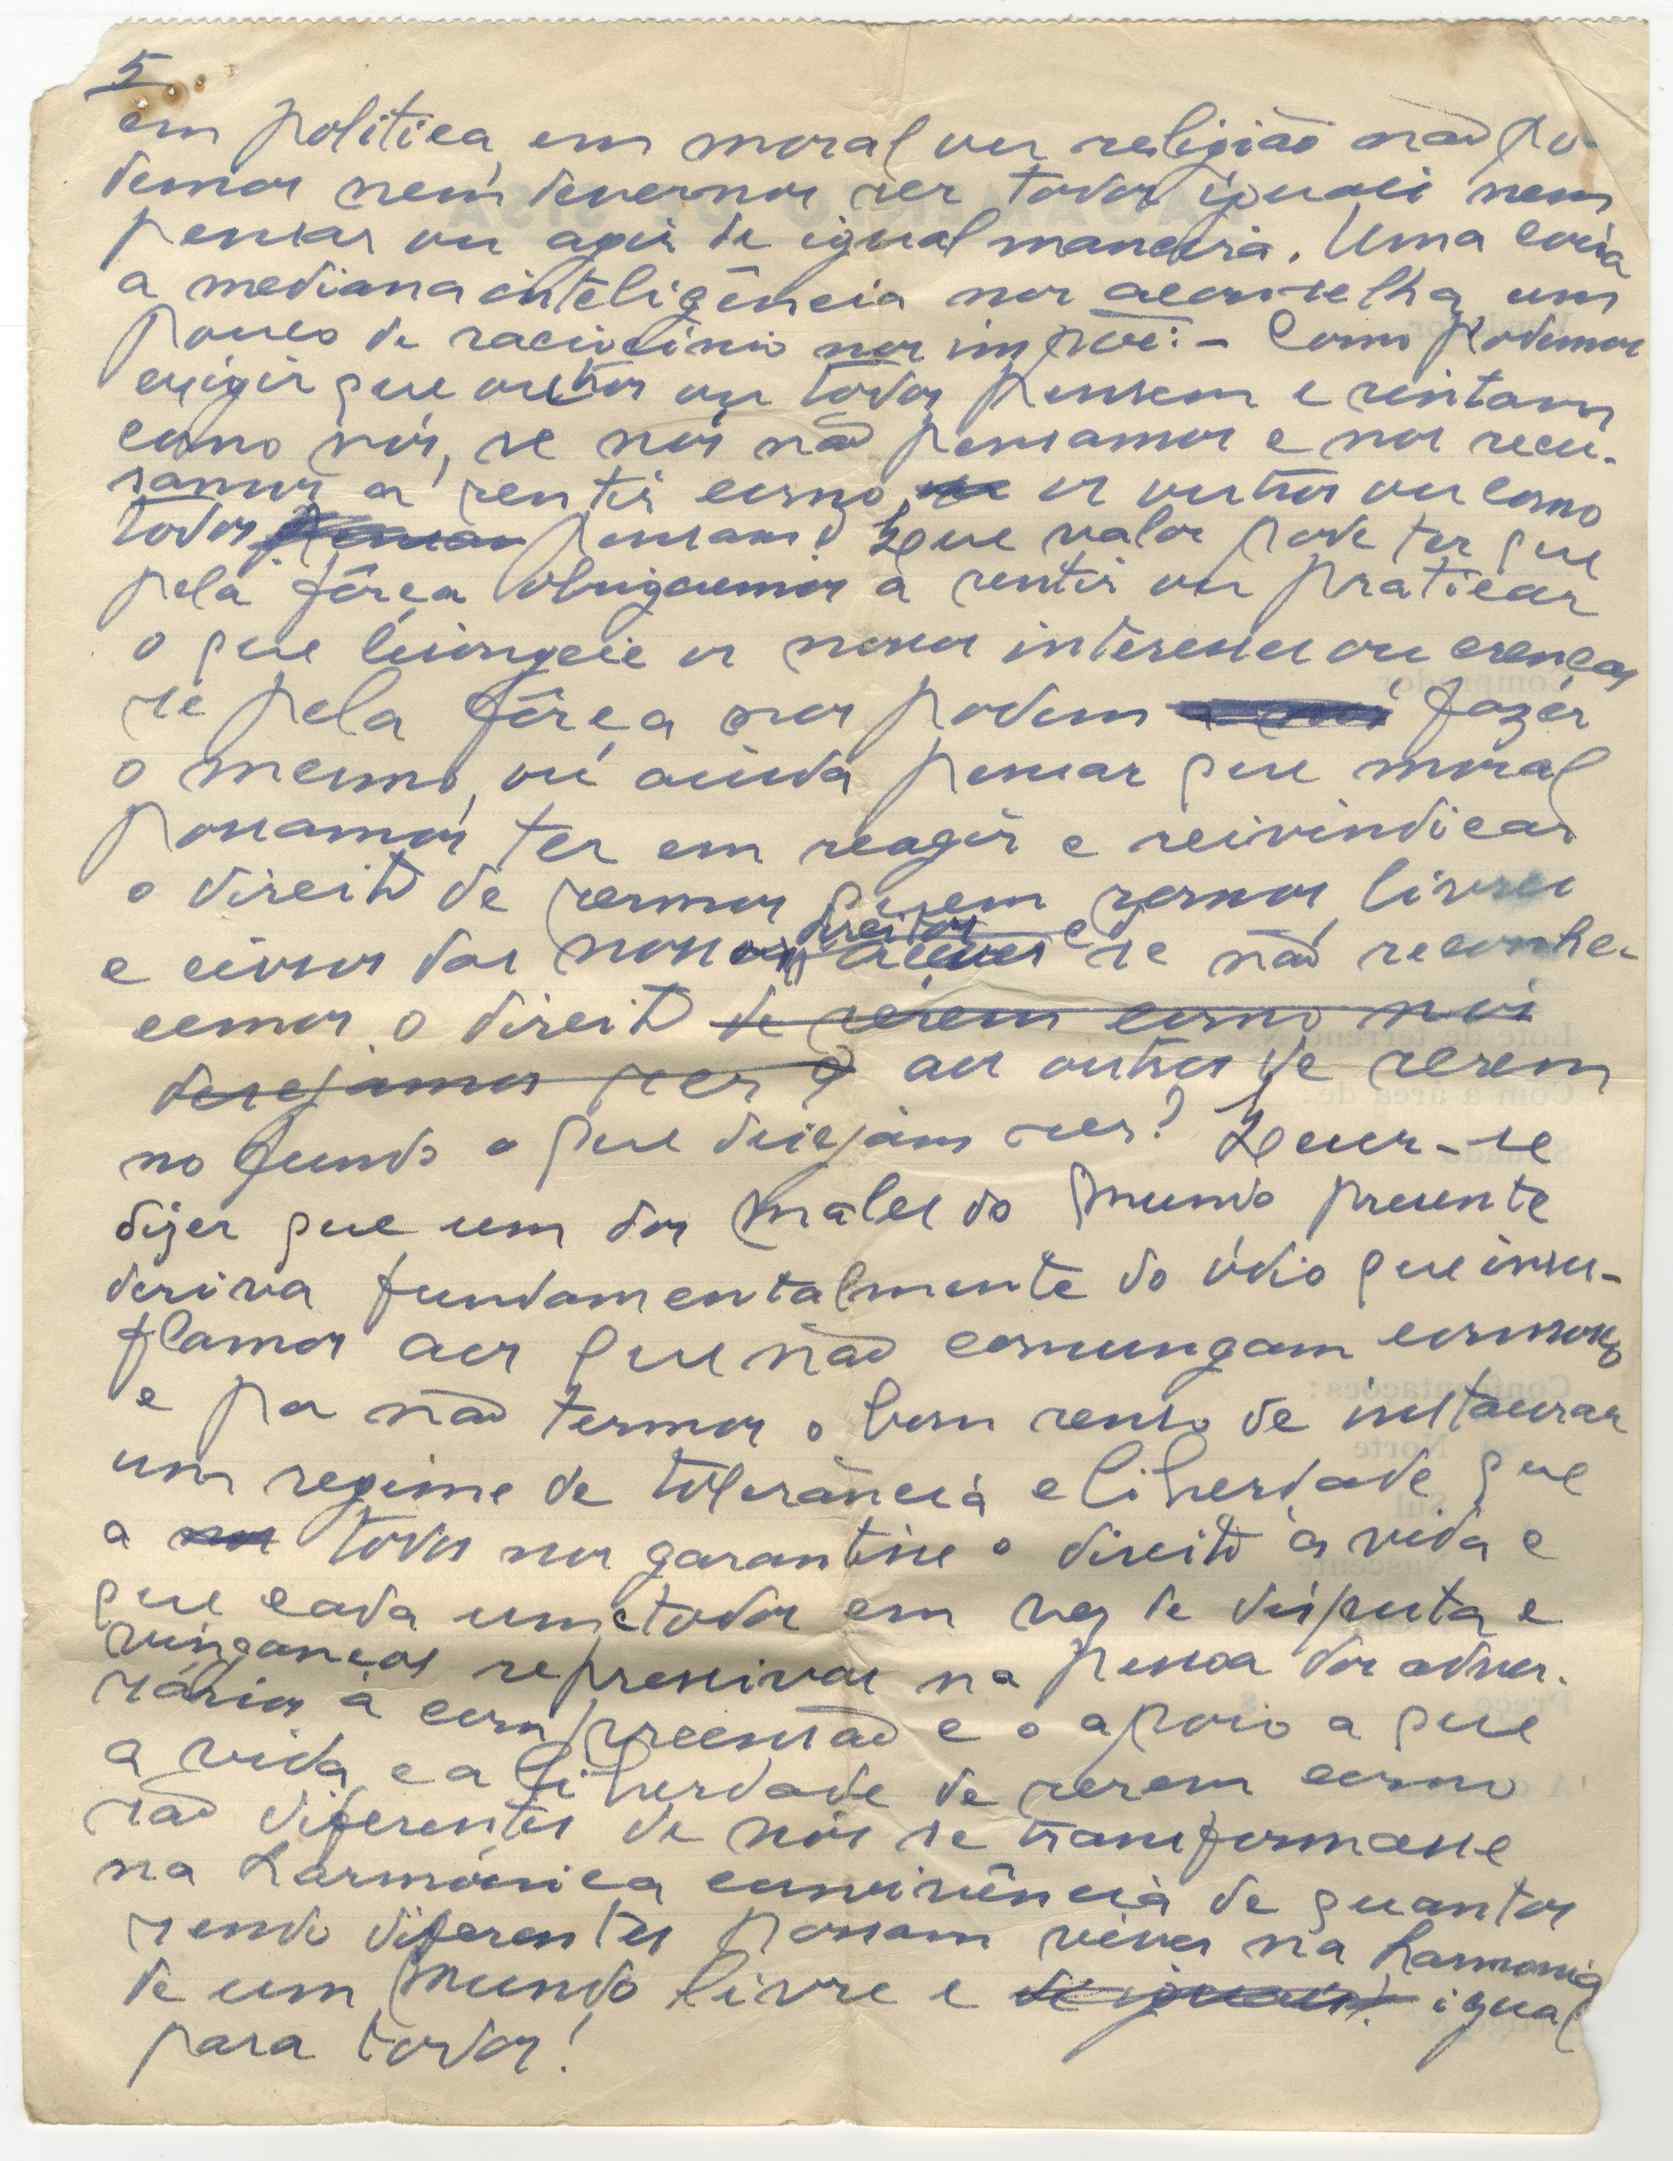 5
em política, em moral ou religião não po-
demos nem devemos ser todos iguais nem
pensar ou agir de igual maneira. Uma coisa
a mediana inteligência nos aconselha, um
pouco de raciocínio nos impõe: - Como podemos
exigir que outros ou todos pensem e sintam
como nós, se nós não pensamos e nos recu-
samos a sentir como os outros ou como
todos pensam? Que valor pode ter que
pela fôrça obriguemos a sentir ou praticar
o que lisongeie os nossos interesses ou crenças
se pela fôrça nos podem fazer
o mesmo, ou ainda pensar que moral
possamos ter em reagir e reivindicar
o direito de sermos quem somos, livres
e ciosos dos nossos direitos e se não reconhe-
cemos o direito de serem como nós
desejamos ser aos outros de serem
no fundo o que desejam ser? Quer-se
dizer que um dos males do mundo presente
deriva fundamentalmente do ódio que insu-
flamos aos que não comungam connosco
e por não termos o bom senso de instaurar
um regime de tolerância e liberdade que
a todos nos garantisse o direito à vida e
que cada um e todos em vez de disputa e
vinganças repressivas na pessoa dos adver-
sários a compreensão e o apoio a que
a vida e a liberdade de serem como
são diferentes de nós se transformasse
na harmónica convivência de quantos
sendo diferentes possam viver na harmonia
de um mundo livre e de iguais igual
para todos!